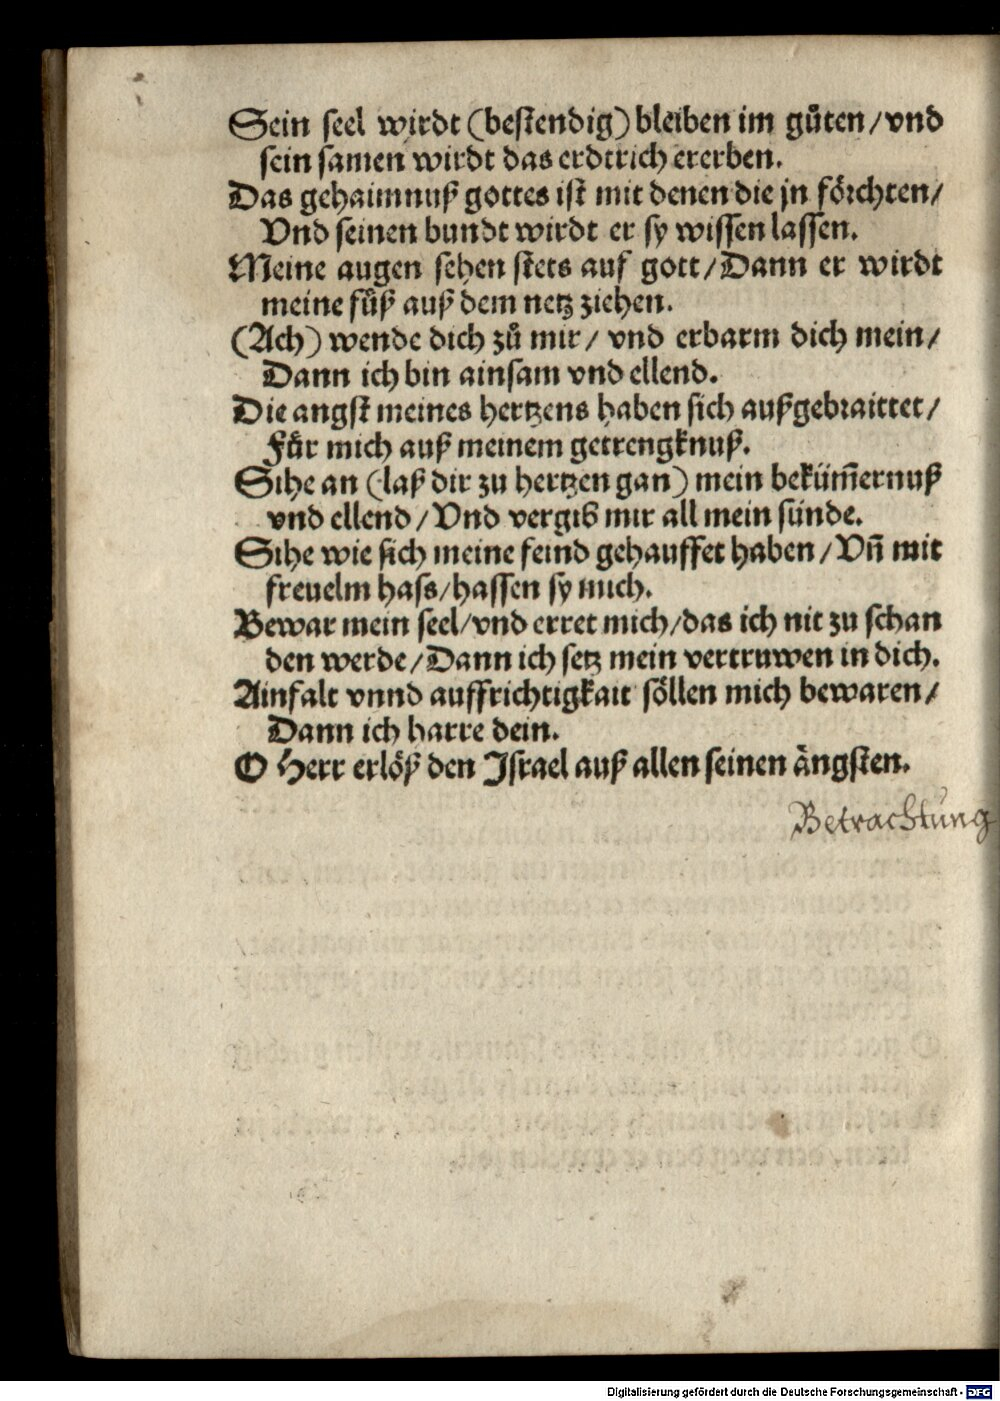 Sein seel wirdt (bestendig) bleiben im guͤten/vnd
sein samen wirdt das erdtrich ererben.
Das gehaimnuß gottes ist mit denen die jn foͤrchten/
Vnd seinen bundt wirdt er sy wissen lassen.
Meine augen sehen stets auf gott/Dann er wirdt
meine fuͤß auß dem netz ziehen.
(Ach) wende dich zuͦ mir/ vnd erbarm dich mein/
Dann ich bin ainsam vnd ellend.
Die angst meines hertzens haben sich außgebraittet/
Fuͤr mich auß meinem getrengknuß.
Sihe an (laß dir zu hertzen gan) mein beküm̃ernuß
vnd ellend/Vnd vergib mir all mein sünde.
Sihe wie sich meine feind gehauffet haben/Vñ mit
freuelm hass/hassen sy mich.
Bewar mein seel/vnd erret mich/das ich nit zu schan
den werde/Dann ich setz mein vertruwen in dich.
Ainfalt vnnd auffrichtigkait soͤllen mich bewaren/
Dann ich harre dein.
O Herr erloͤß den Israel auß allen seinen aͤngsten.
Betrachtung
Digitalisierung gefördert durch die Deutsche Forschungsgemeinschaft - DFG